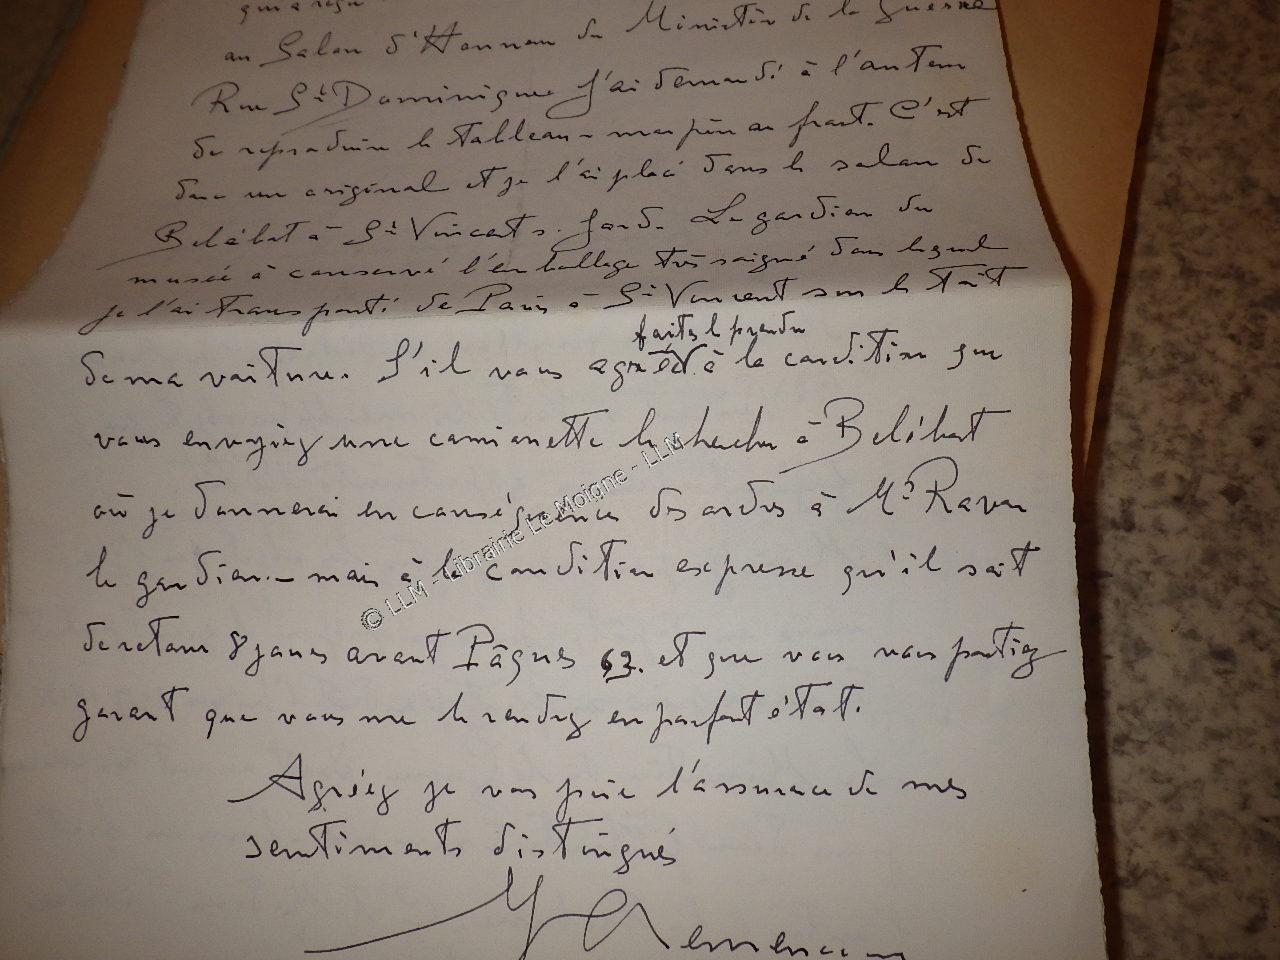 qui a reçu
au Salon d'Honneur du Ministère de la Guerre
Rue St Dominique J'ai demandé à l'auteur
de reproduire le tableau - mon père au front. C'est
donc un original et je l'ai placé dans le salon de
Belébat à St Vincent s. Jard. Le gardien du
musée à conservé l'emballage très soigné dans lequel
je l'ai transporté de Paris à St Vincent sur le toit
de ma voiture. S'il vous agrée faites le prendre à la condition que
vous envoyiez une camionette le chercher à Belébat
où je donnerai en conséquence des ordres à Mr Ravon
le gardien - mais à la condition expresse qu'il soit
de retour 8 jours avant Pâques 63. et que vous vous portiez
garant que vous me le rendrez en parfait état.
Agréez je vous prie l'assurance de mes
sentiments distingués
Clemenceau
© LLM - Librairie Le Moigne - LLM